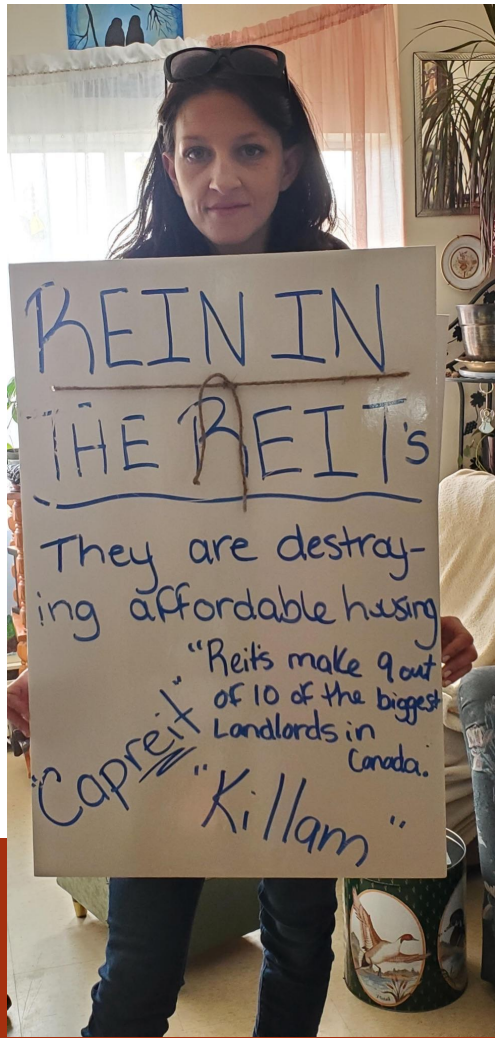 REIN IN
THE REIT's
They are destroy-
ing affordable housing
"Reit's make 9 out
of 10 of the biggest
Landlords in
Canada.
"Capreit"
"Killam"